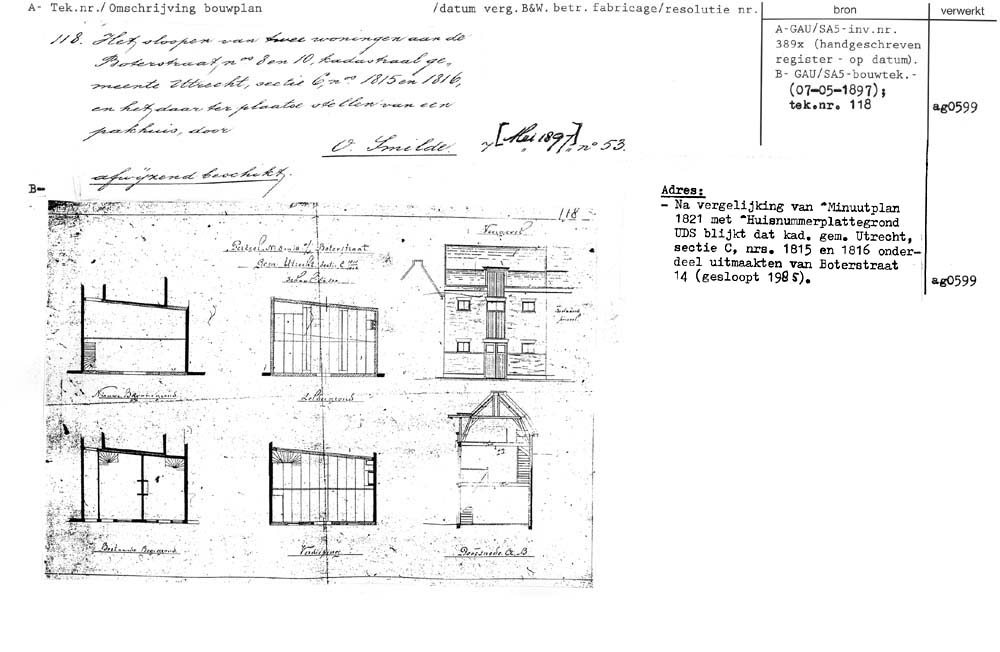 A- Tek.nr./Omschrijving bouwplan /datum verg. B&W. betr. fabricage/resolutie nr.
bron
verwerkt
118. Het sloopen van twee woningen aan de
Boterstraat, nos 8 en 10, kadastraal ge-
meente Utrecht, sectie C, nos 1815 en 1816,
en het daar ter plaatse stellen van een
pakhuis, door
O. Smilde. 7 [Mei 1897] no 53.
afwijzend beschikt.
A-GAU/SA5-inv.nr.
389x (handgeschreven
register - op datum).
B- GAU/SA5-bouwtek.-
(07-05-1897);
tek.nr. 118
ag0599
B-
118
Voorgevel
Boterstraat
Gem. Utrecht Sectie C
Nieuwe Beganegrond
Zoldergrond
Bestaande Begagrond
Verdieping
Doorsnede A.B
Adres:
- Na vergelijking van *Minuutplan
1821 met *Huisnummerplattegrond
UDS blijkt dat kad. gem. Utrecht,
sectie C, nrs. 1815 en 1816 onder-
deel uitmaakten van Boterstraat
14 (gesloopt 1985).
ag0599